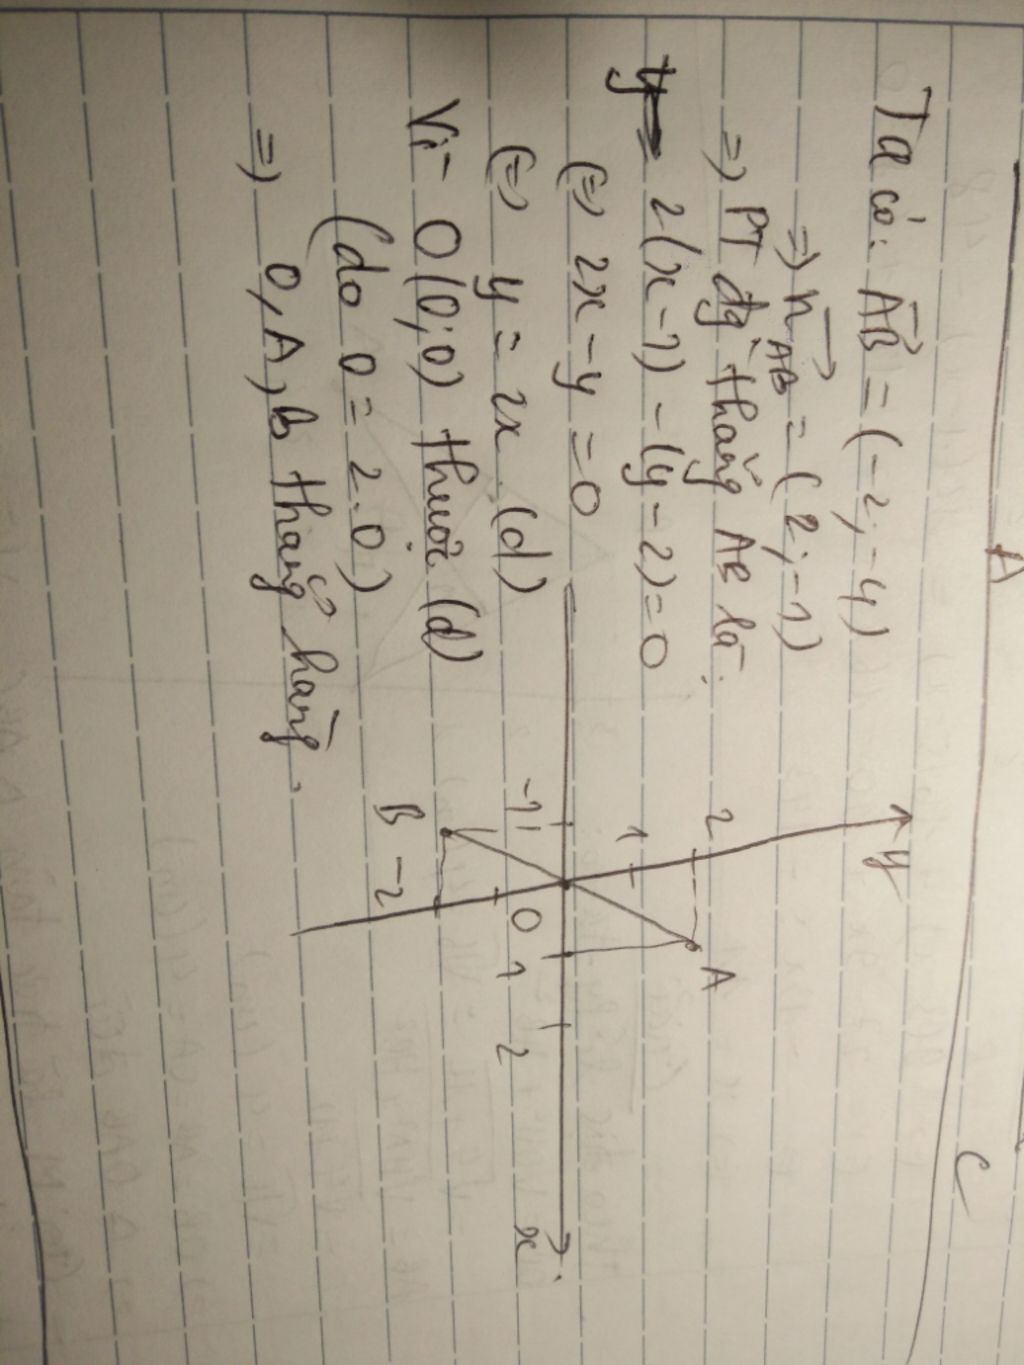 A
C
Ta có: AB→ = (-2; -4)
=> n→AB = (2; -1)
=> PT đg` thẳng AB là:
2(x-1) - (y-2) = 0
(=) 2x - y = 0
(=) y = 2x (d)
Vì O(0;0) thuộc (d)
(do 0 = 2.0)
=> O, A, B thẳng hàng.
y
2
A
1
-1
O
1
2
x
B
-2